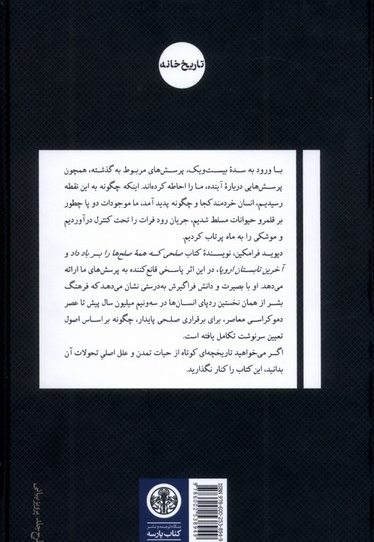 تاریخ‌خانه
با ورود به سدهٔ بیست‌ویک، پرسش‌های مربوط به گذشته، همچون
پرسش‌هایی دربارهٔ آینده، ما را احاطه کرده‌اند. اینکه چگونه به این نقطه
رسیدیم، انسان خردمند کجا و چگونه پدید آمد، ما موجودات دو پا چطور
بر قلمرو حیوانات مسلط شدیم، جریان رود فرات را تحت کنترل درآوردیم
و موشکی را به ماه پرتاب کردیم.
دیوید فرامکین، نویسندهٔ کتاب صلحی که همهٔ صلح‌ها را بر باد داد و
آخرین تابستان اروپا، در این اثر پاسخی قانع‌کننده به پرسش‌های ما ارائه
می‌دهد. او با بصیرت و دانش فراگیرش به‌درستی نشان می‌دهد که فرهنگ
بشر از همان نخستین ردپای انسان‌ها در سه‌ونیم میلیون سال پیش تا عصر
دموکراسی معاصر، برای برقراری صلحی پایدار، چگونه بر اساس اصول
تعیین سرنوشت تکامل یافته است.
اگر می‌خواهید تاریخچه‌ای کوتاه از حیات تمدن و علل اصلیِ تحولات آن
بدانید، این کتاب را کنار نگذارید.
بنگاه ترجمه و نشر
کتاب پارسه
طرح جلد: پرویز بیانی